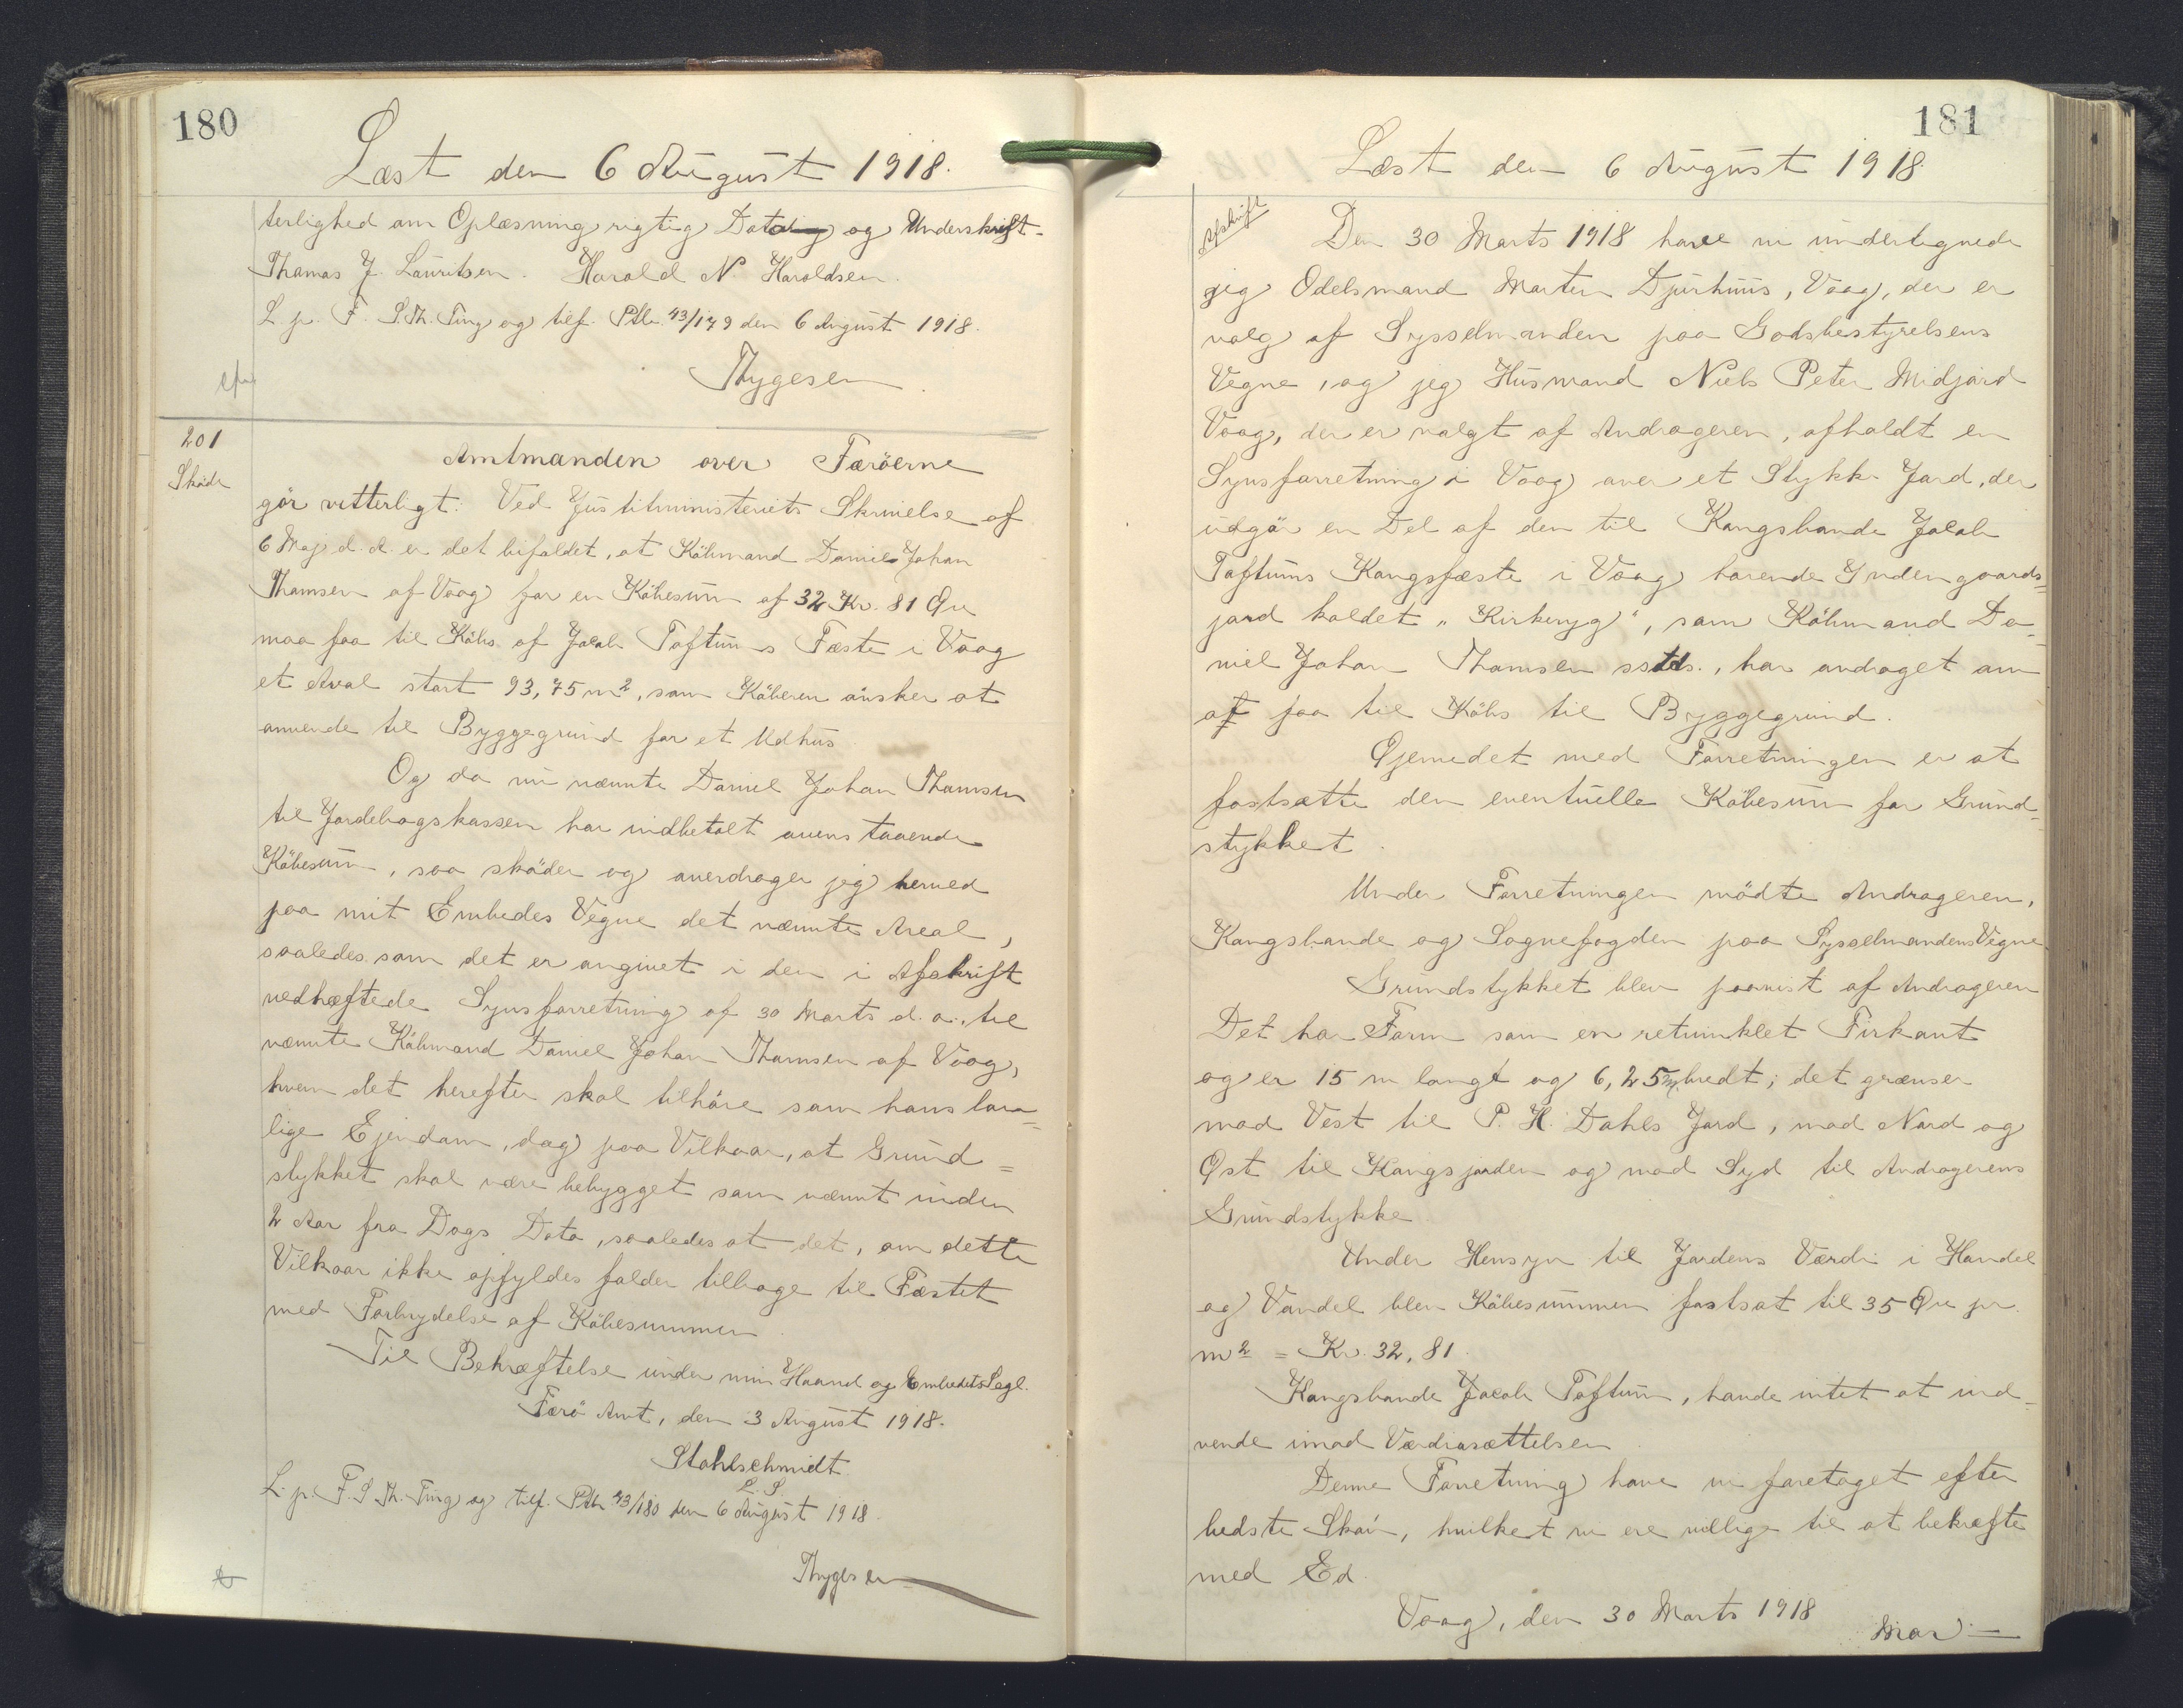 180
Læst den 6 August 1918.
terlighed om Oplæsning rigtig Datering og Underskrift.
Thomas J. Lauritsen. Harald N. Haraldsen.
L. p. F. S. Th. Ting og tilf. Ptbr. 43/179 den 6 August 1918.
Thygesen
201
Sköde
Amtmanden over Færöerne
gör vitterligt: Ved Justitsministeriets Skrivelse af
6 Maj d. A. er det bifaldet, at Köbmand Daniel Johan
Thomsen af Vaag for en Köbesum af 32 Kr. 81 Øre
maa faa til Köbs af Jacob Toftums Fæste i Vaag
et Areal stort 93,75 m², som Köberen önsker at
anvende til Byggegrund for et Udhus.
Og da nu nævnte Daniel Johan Thomsen
til Jordebogskassen har indbetalt ovenstaaende
Köbesum, saa sköder og overdrager jeg herved
paa mit Embedes Vegne det nævnte Areal,
saaledes som det er angivet i den i Afskrift
vedhæftede Synsforretning af 30 Marts d. A., til
nævnte Köbmand Daniel Johan Thomsen af Vaag,
hvem det herefter skal tilhöre som hans lov=
lige Ejendom, dog paa Vilkaar, at Grund=
stykket skal være bebygget som nævnt inden
2 Aar fra Dags Dato, saaledes at det, om dette
Vilkaar ikke opfyldes falder tilbage til Fæstet
med Forbrydelse af Köbesummen.
Til Bekræftelse under min Haand og Embedets Segl.
Færö Amt, den 3 August 1918.
Stahlschmidt.
L. S.
L. p. F. S Th. Ting og tilf. Ptbr 43/180 den 6 August 1918.
Thygesen
181
Læst den 6 August 1918.
Afskrift
Den 30 Marts 1918 have vi undertegnede
jeg Odelsmand Morten Djurhuus, Vaag, der er
valg af Sysselmanden paa Godsbestyrelsens
Vegne, og jeg Husmand Niels Peter Midjord
Vaag, der er valgt af Andrageren, afholdt en
Synsforretning i Vaag over et Stykke Jord, der
udgör en Del af den til Kongsbonde Jacob
Toftums Kongsfæste i Vaag hörende Indengaards=
jord kaldet „Kirkeryg“, som Köbmand Da=
niel Johan Thomsen sstds., har andraget om
at faa til Köbs til Byggegrund.
Øjemedet med Forretningen er at
fastsætte den eventuelle Köbesum for Grund=
stykket.
Under Forretningen mödte Andrageren,
Kongsbonde og Sognefogden paa Sysselmandens Vegne
Grundstykket blev paavist af Andrageren
Det har Form som en retvinklet Firkant
og er 15 m langt og 6,25 m. bredt; det grænser
mod Vest til P. H. Dahls Jord, mod Nord og
Øst til Kongsjorden og mod Syd til Andragerens
Grundstykke.
Under Hensyn til Jordens Værdi i Handel
og Vandel blev Köbesummen fastsat til 35 Øre pr.
m² = Kr. 32,81.
Kongsbonde Jacob Toftum, havde intet at ind=
vende imod Værdiansættelsen.
Denne Forretning have vi foretaget efter
bedste Skön, hvilket vi ere villige til at bekræfte
med Ed.
Vaag, den 30 Marts 1918
Mor=